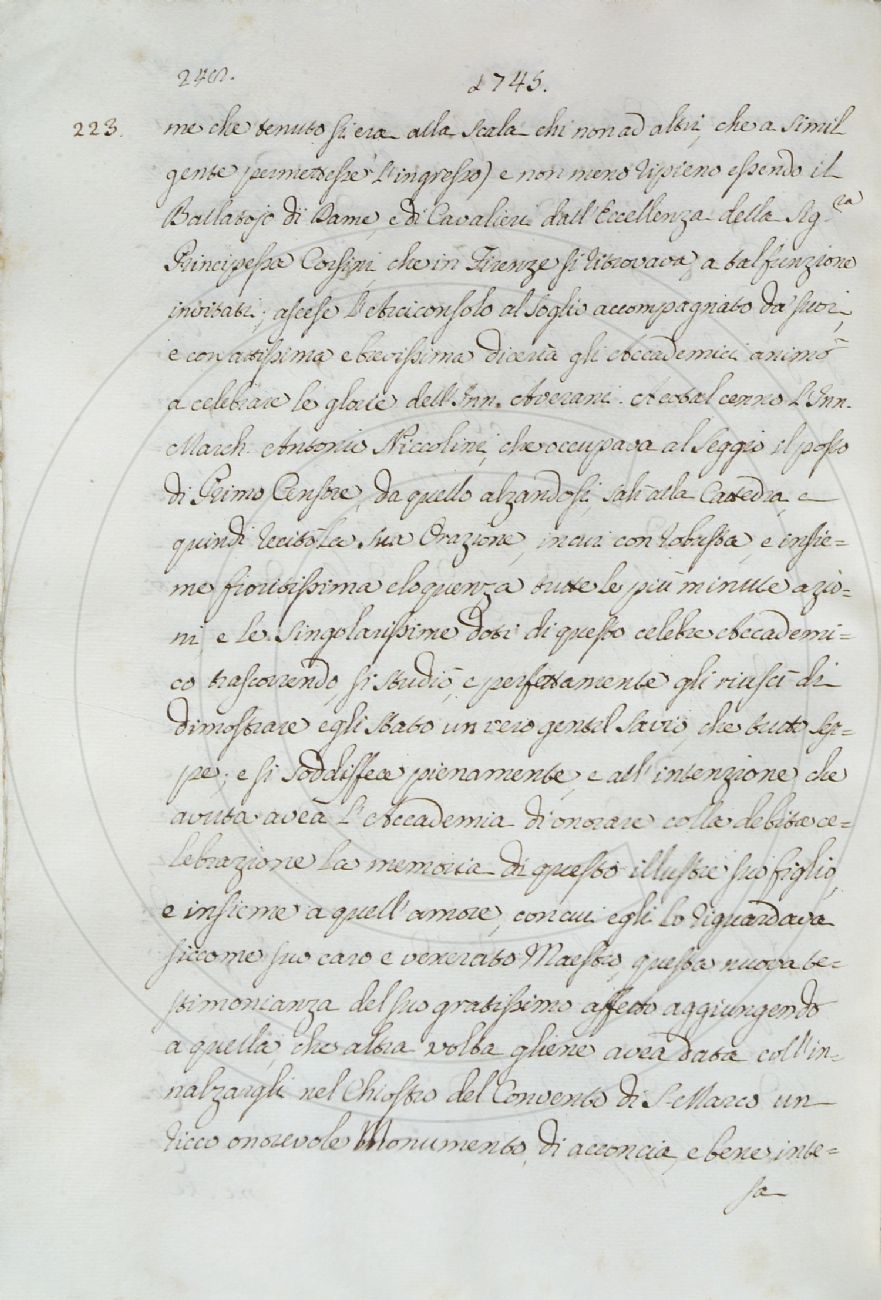 1745.
223.
me che tenuto si era alla scala chi non ad altri, che a simil
gente permettesse l'ingresso) e non meno ripieno essendo il
Ballatojo di Dame, e di Cavalieri dall'Eccellenza della Sig.ra
Principessa Corsini, che in Firenze si ritrovava, a tal funzione
invitati; ascese l'Arciconsolo al soglio accompagnato da suoi,
e con attissima e brevissima diceria gli Accademici animò
a celebrare le glorie dell'Inn. Averani. A cotal cenno l'Inn.
March. Antonio Niccolini, che occupava al Seggio il posto
di Primo Censore, da quello alzandosi, salì alla Cattedra, e
quindi recitò la sua Orazione, in cui con robusta, e insie=
me fioritissima eloquenza tutte le più minute azio=
ni, e le singolarissime doti di questo celebre Accademi=
co trascorrendo, si studiò, e perfettamente gli riuscì di
dimostrare egli stato un vero gentil savio, che tutto sep=
pe; e si soddisfece pienamente, e all'intenzione che
avuta avea l'Accademia di onorare colla debita ce=
lebrazione la memoria di questo illustre suo figlio,
e insieme a quell'amore, con cui egli lo riguardava
siccome suo caro e venerato Maestro, questa nuova te=
stimonianza del suo gratissimo affetto aggiungendo
a quella, che altra volta gliene avea data coll'in=
nalzargli nel Chiostro del Convento di S. Marco un
ricco onorevole Monumento, di acconcia, e bene inte=
sa